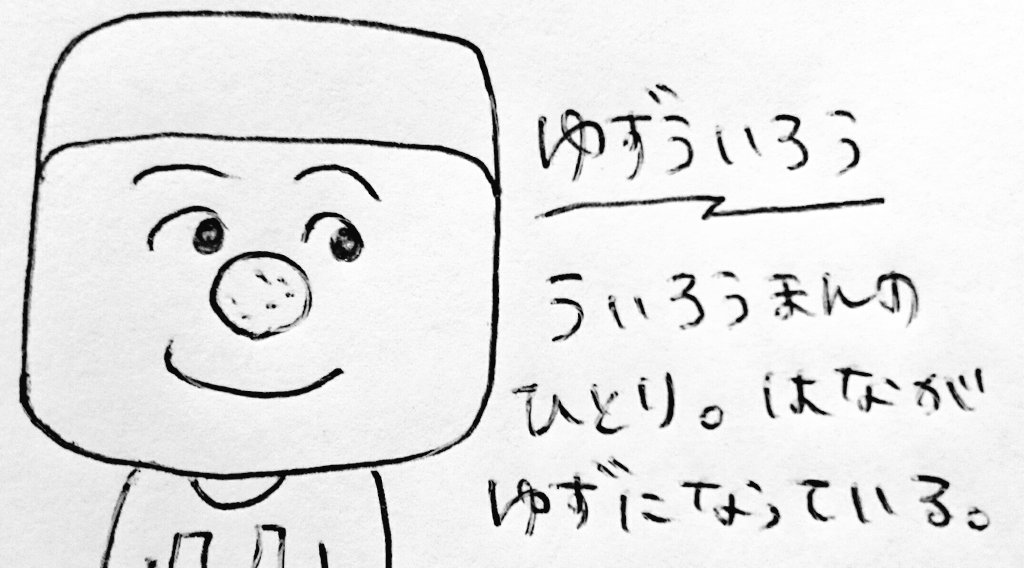 ゆずういろう
ういろうまんの
ひとり。はなが
ゆずになっている。